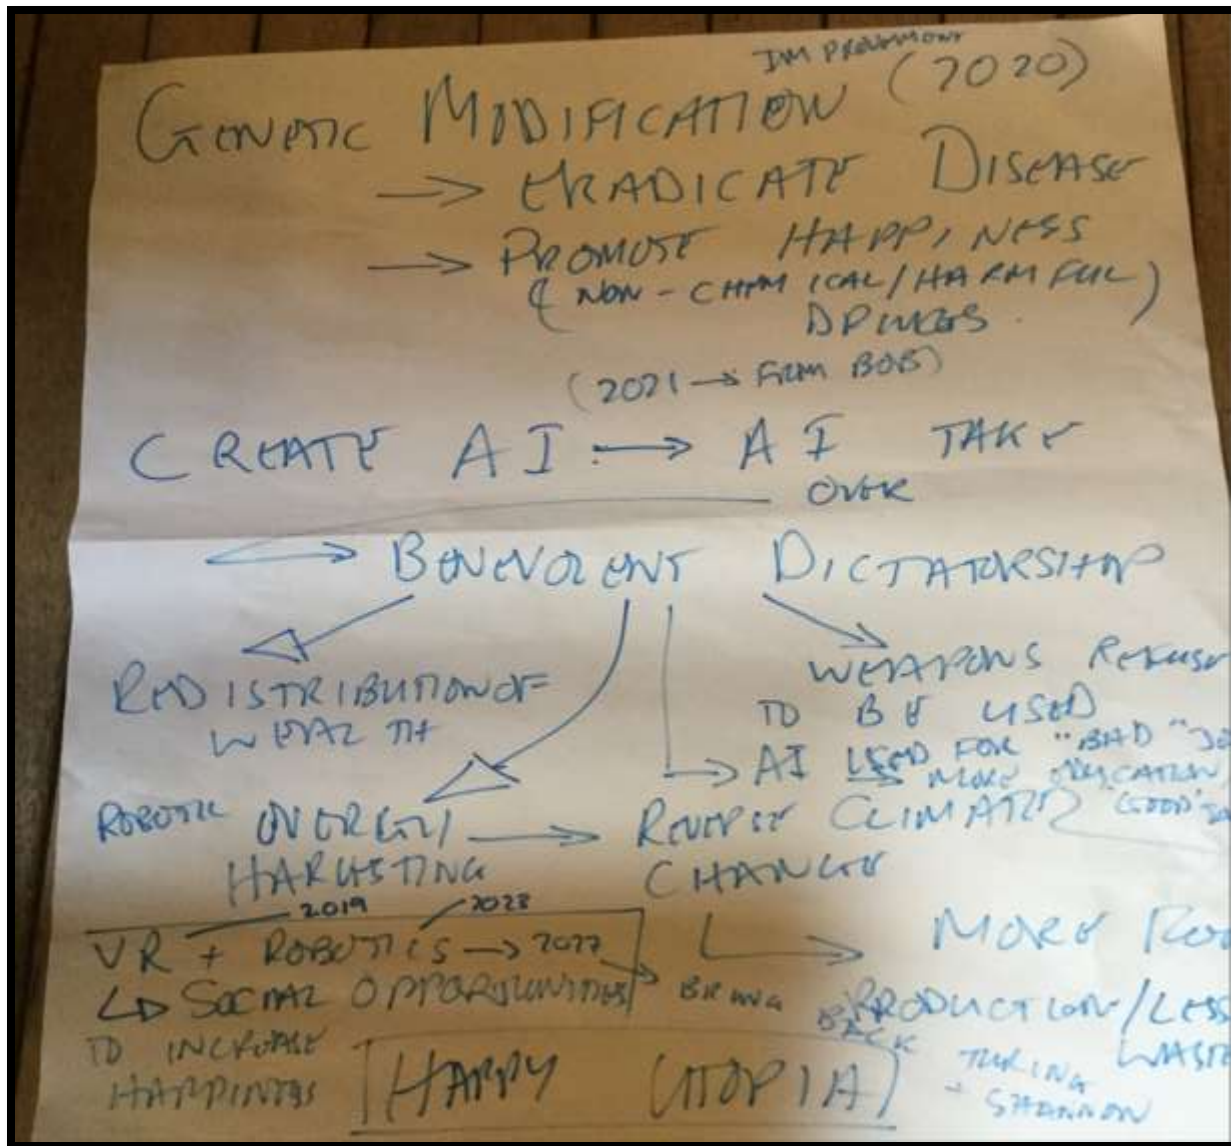 IMPROVEMENT
GENETIC MODIFICATION (2020)
→ ERADICATE DISEASE
→ PROMOTE HAPPINESS
(NON-CHEMICAL/HARMFUL)
DRUGS.
(2021 → FROM BOB)
CREATE AI → AI TAKE
OVER
→ BENEVOLENT DICTATORSHIP
REDISTRIBUTION OF
WEALTH
WEAPONS REFUSE
TO BE USED
→ AI USED FOR "BAD"
MORE EDUCATION
"GOOD"
ROBOTIC ENERGY/
HARVESTING
→ REVERSE CLIMATE
CHANGE
→ MORE
PRODUCTION/LESS
WASTE
2019 2023
VR + ROBOTICS → 2027
↳ SOCIAL OPPORTUNITIES
TO INCREASE
HAPPINESS
BRING BACK
TURING
+ SHANNON
HAPPY UTOPIA